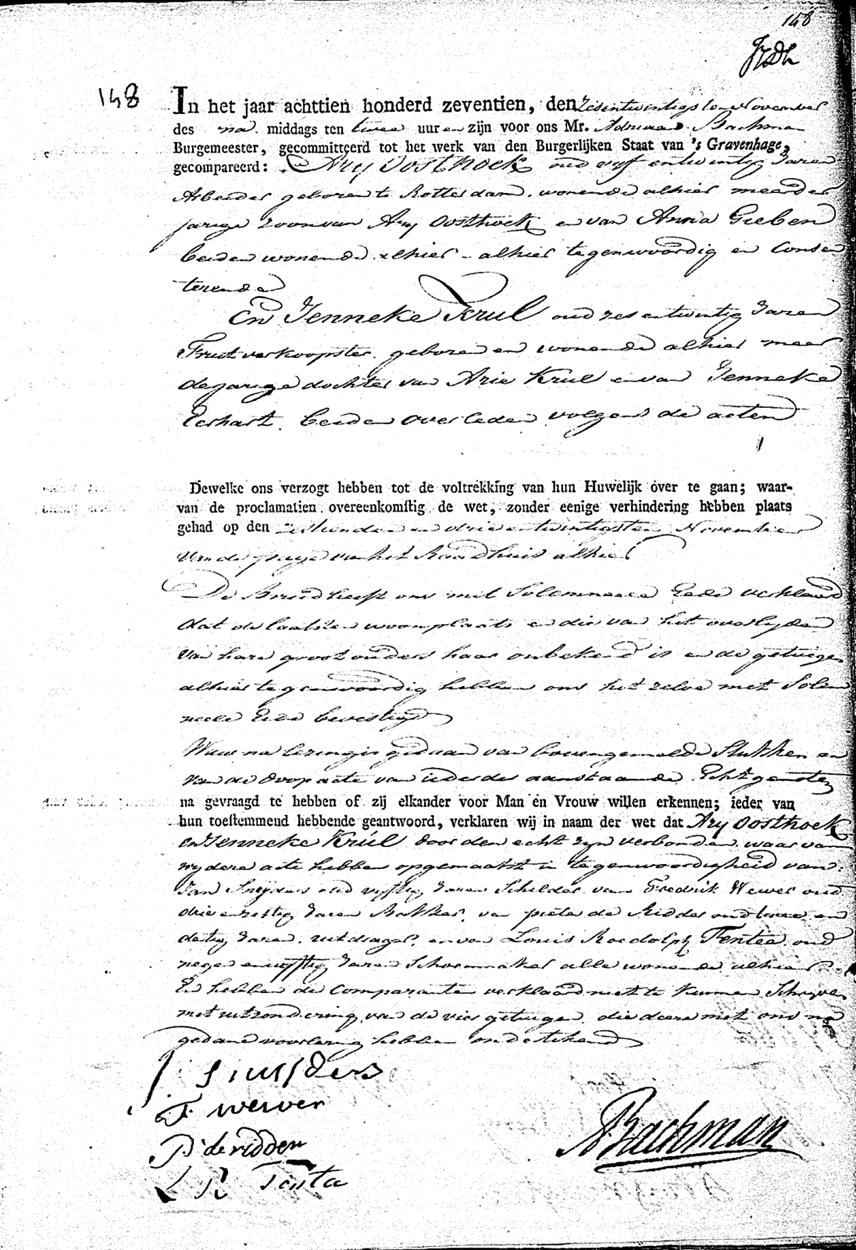 148
148
In het jaar achttien honderd zeventien, den zesentwintigsten November
des na middags ten twee uuren zijn voor ons Mr. Adriaan Bachman
Burgemeester, gecommitteerd tot het werk van den Burgerlijken Staat van 's Gravenhage,
gecompareerd: Arij Oosthoek oud vijf en twintig Jaren
Arbeider geboren te Rotterdam, wonende alhier meerder
jarige zoon van Arij Oosthoek en van Anna Gieben
beiden wonende alhier - alhier tegenwoordig en consen
terende
En Jenneke Krul oud zesentwintig Jaren
Fruitverkoopster, geboren en wonende alhier meer
derjarige dochter van Arie Krul en van Jenneke
Eerhart, beiden overleden volgens de acten
Dewelke ons verzogt hebben tot de voltrekking van hun Huwelijk over te gaan; waar-
van de proclamatien overeenkomstig de wet, zonder eenige verhindering hebben plaats
gehad op den zestienden en drieentwintigsten November
van de puije van het Raadhuis alhier
De Bruid heeft ons met Solemneele Eede verklaard
dat de laatste woonplaats en die van het overlijden
van hare grootouders haar onbekend is en de getuigen
alhier tegenwoordig hebben ons het zelve met Solem
neele Eede bevestigd
Waar na lezing is gedaan van bovengemelde Stukken en
van de doopacte van ieder der aanstaande Echtgenoten
na gevraagd te hebben of zij elkander voor Man en Vrouw willen erkennen; ieder van
hun toestemmend hebbende geantwoord, verklaren wij in naam der wet dat Arij Oosthoek
en Jenneke Krul door den echt zijn verbonden, waar van
wij deze acte hebben opgemaakt in tegenwoordigheid van
Jan Snijders oud vijftig Jaren Schilder, van Fredrik Wewer oud
drie en zestig Jaren Bakker, van Pieter de Ridder oud twee en
dertig Jaren, uitdrager, en van Louis Roedolph Tentee oud
negen en vijftig Jaren Schoenmaker alle wonende alhier
En hebben de Comparanten verklaard niet te kunnen Schrijven
met uitzondering van de vier getuigen, die deze met ons na
gedane voorlezing hebben ondertekend
J Snijders
F. Wewer
P de ridder
L R Tenta
ABachman